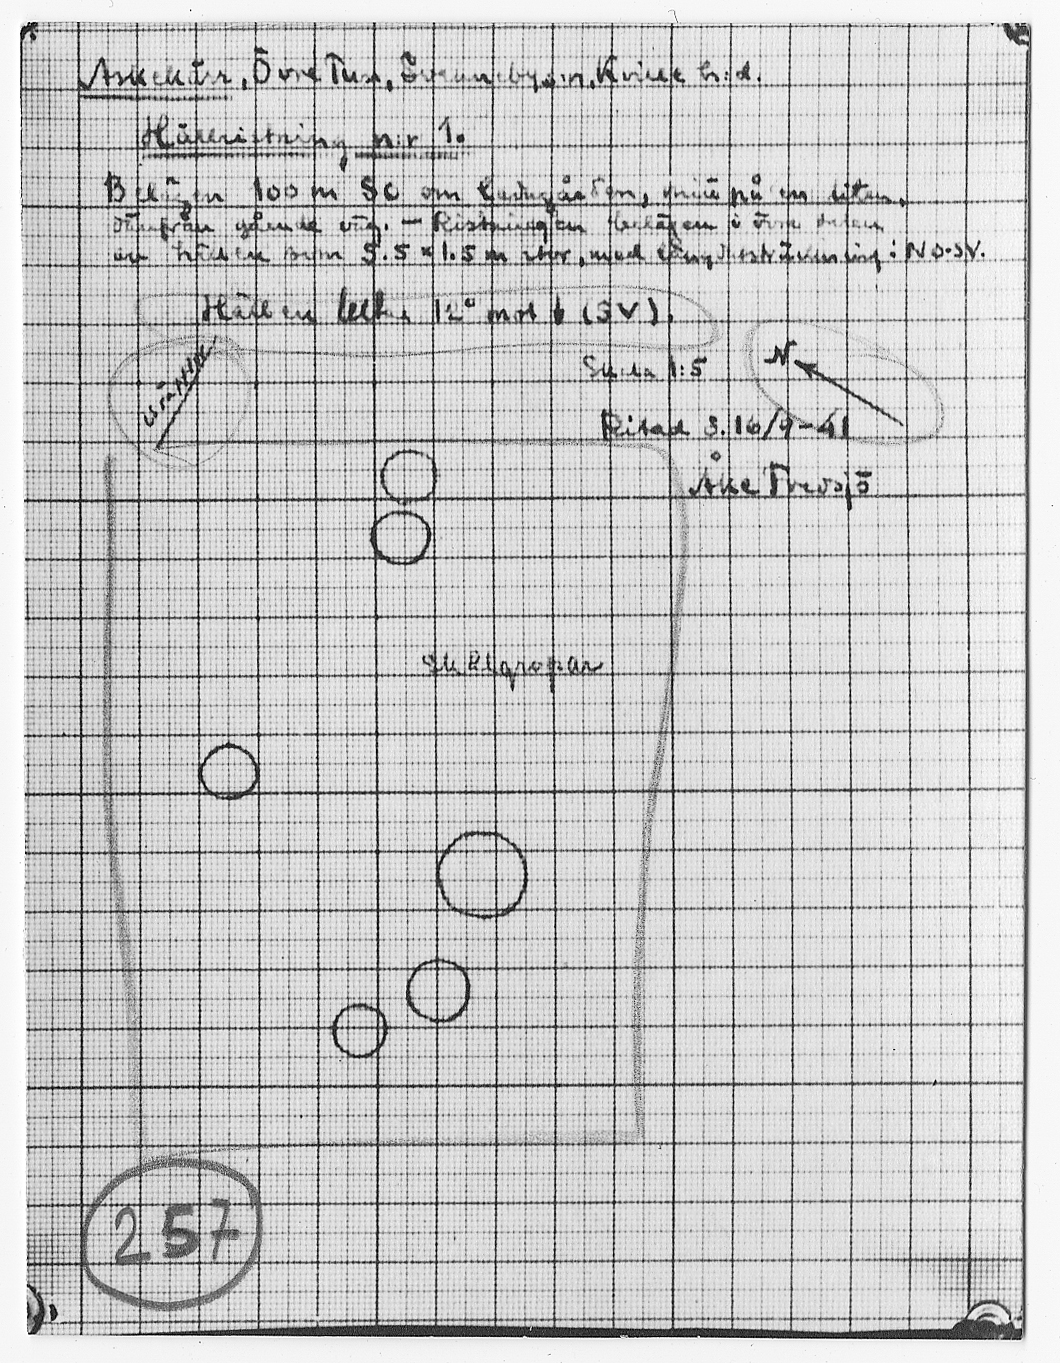 Askekärr, Övre Tun, Svenneby s:n, Kville h:d.
Hällristning n:r 1.
Belägen 100 m SO om ladugården, invid på en liten,
utifrån gående väg. — Ristningen belägen i övre delen
av hällen som 5.5 × 1.5 m stor, med längdutsträckning i NO-SV.
Hällen lutar 12° mot (SV).
N
Skala 1:5
Ritad d. 16/9-41
Åke Fredsjö
Skålgropar
257